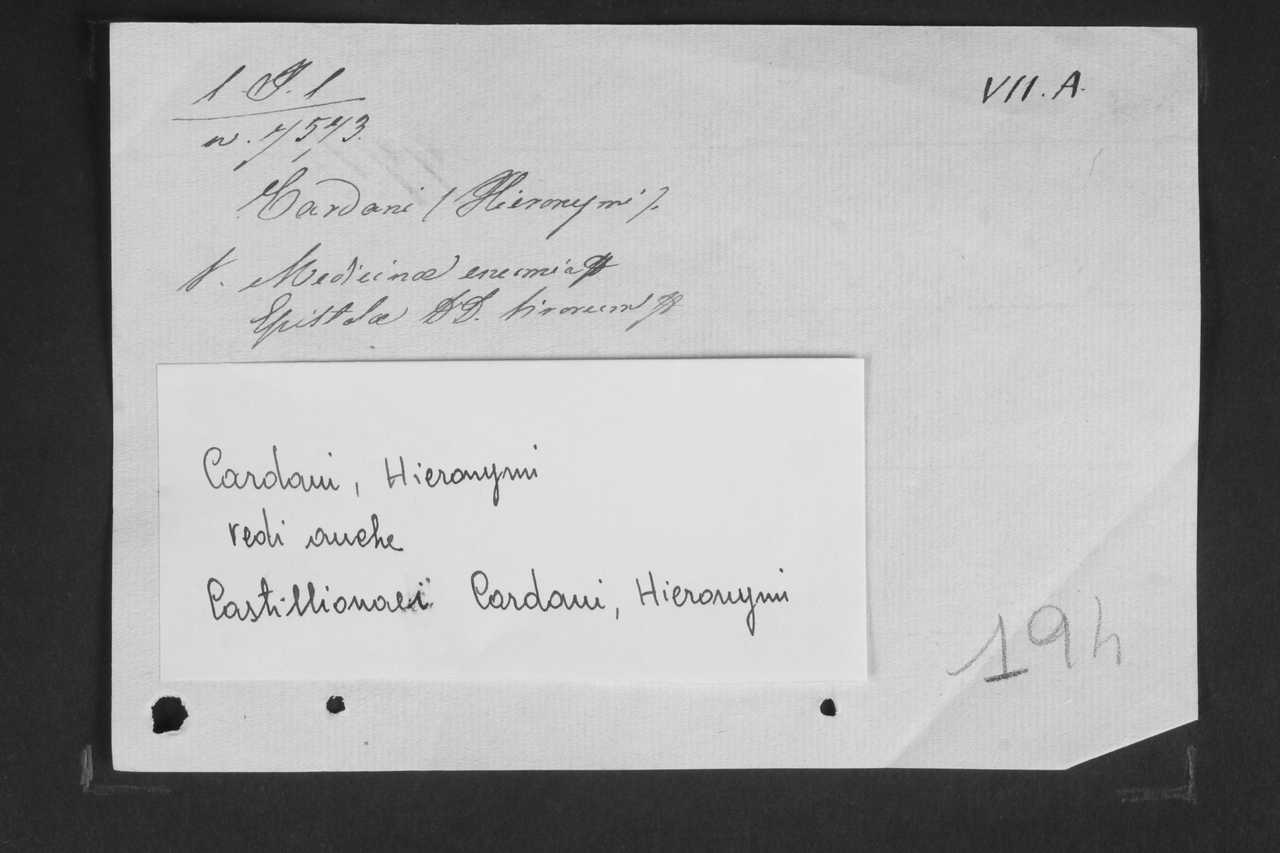 VII. A.
n. 7573.
Cardani (Hieronymi).
V. Medicinæ encomia
Epistolæ DD. Virorum
Cardani, Hieronymi
vedi anche
Castillionaei Cardani, Hieronymi
194